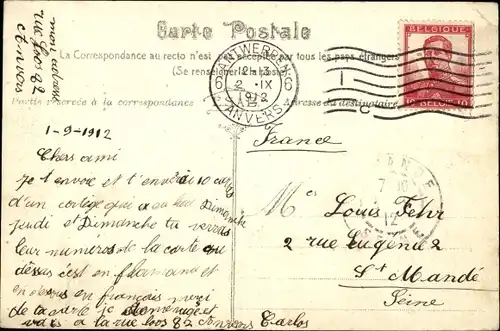 mon adresse
rue Loos 82
Anvers
Carte Postale
La Correspondance au recto n'est pas acceptée par tous les pays étrangers
(Se renseigner à la poste)
Partie réservée à la correspondance
Adresse du destinataire
ANTWERPEN
6 6
12-13
2 IX
1912
ANVERS
BELGIQUE
10 BELGIË 10
1-9-1912
Chers ami
je t'envoie et t'envérai 10 cartes
d'un cortège qui a eu lieu Dimanche
jeudi et Dimanche tu verras
leur numéros de la carte au
dessus c'est en flamand et
en dessous en français merci
de ta carte je déménage et
vais à la rue loos 82 Anvers Carlos
France
Mr Louis Fehr
2 rue Eugénie 2
St Mandé
Seine
7 10
12